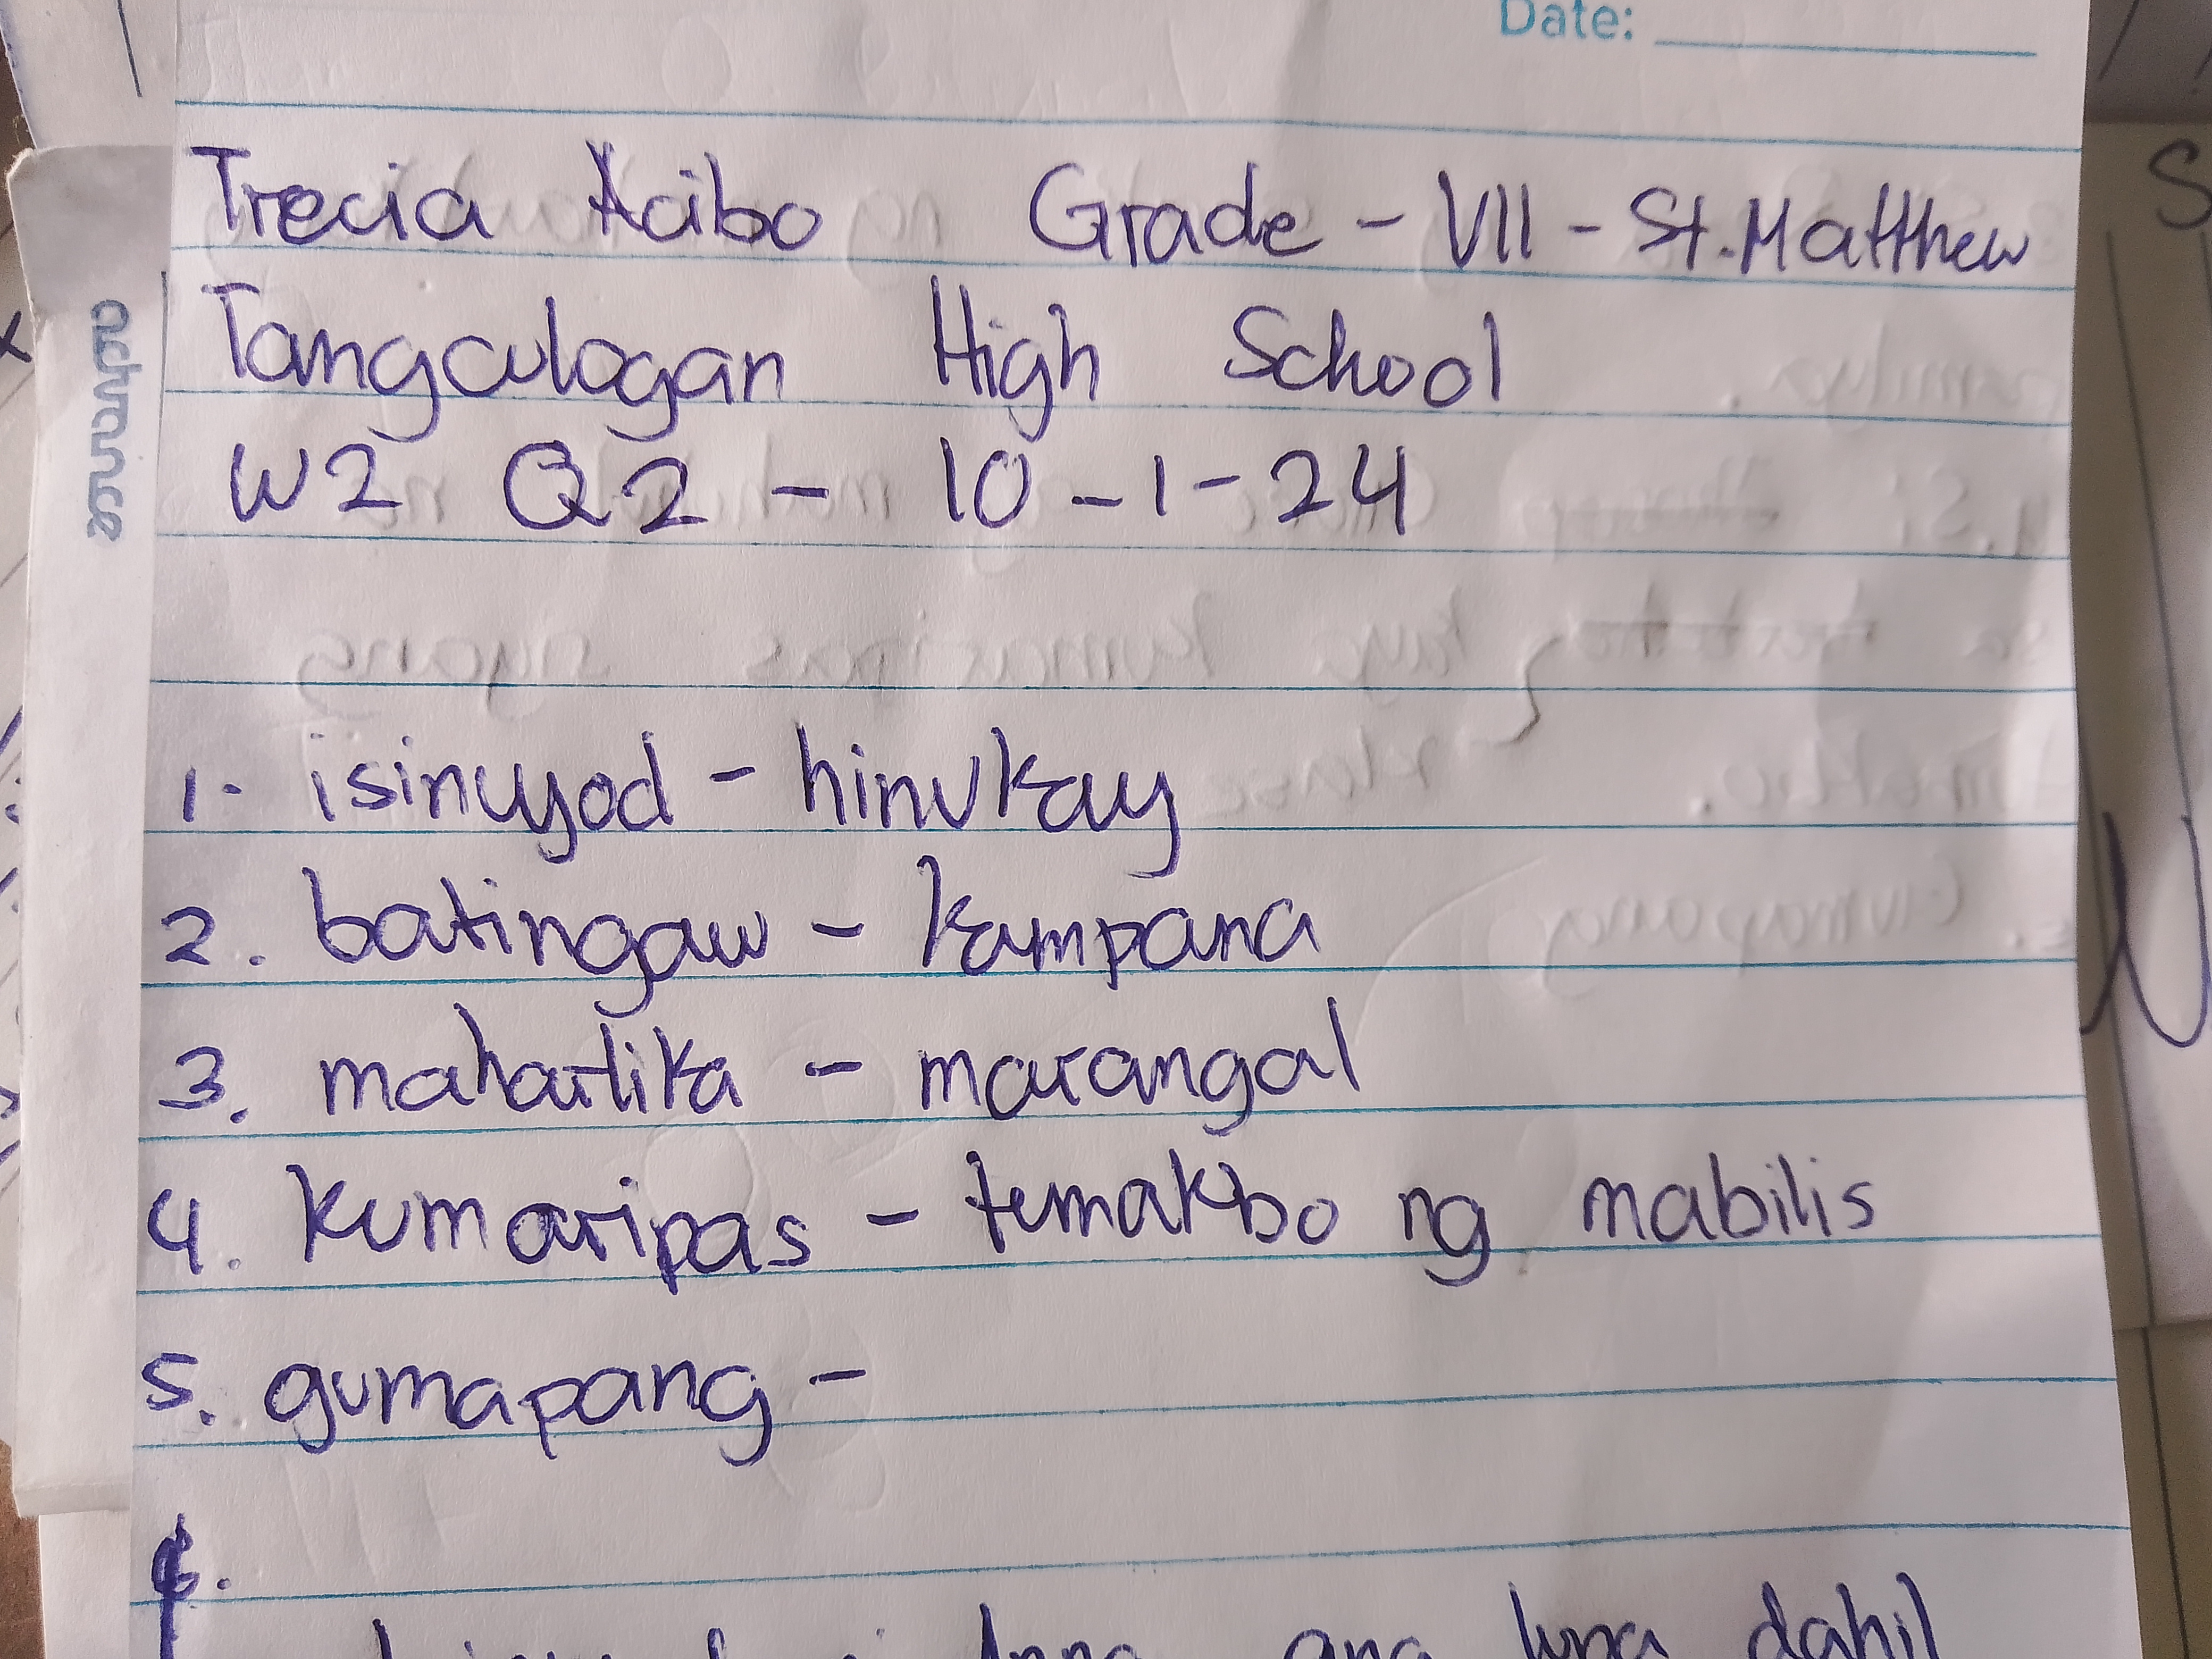 Date:
Trecia Acibo Grade - VII - St. Matthew
Tangculogan High School
W2 Q2 - 10 - 1 - 24
1. isinuyod - hinukay
2. batingaw - kampana
3. maharlika - marangal
4. kumaripas - temakbo ng mabilis
5. gumapang -
ang lupa dahil
advance